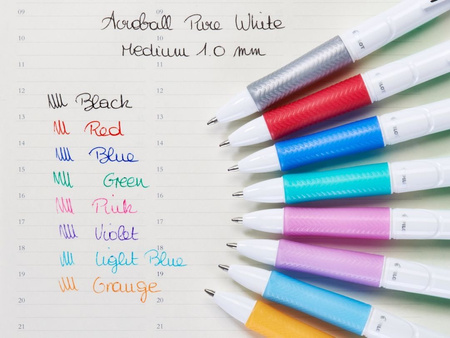 Acroball Pure White
Medium 1.0 mm
09
10
11
12
13
14
15
16
17
18
19
20
21
Black
Red
Blue
Green
Pink
Violet
Light Blue
Orange
09
12
13
14
15
16
17
18
19
20
21